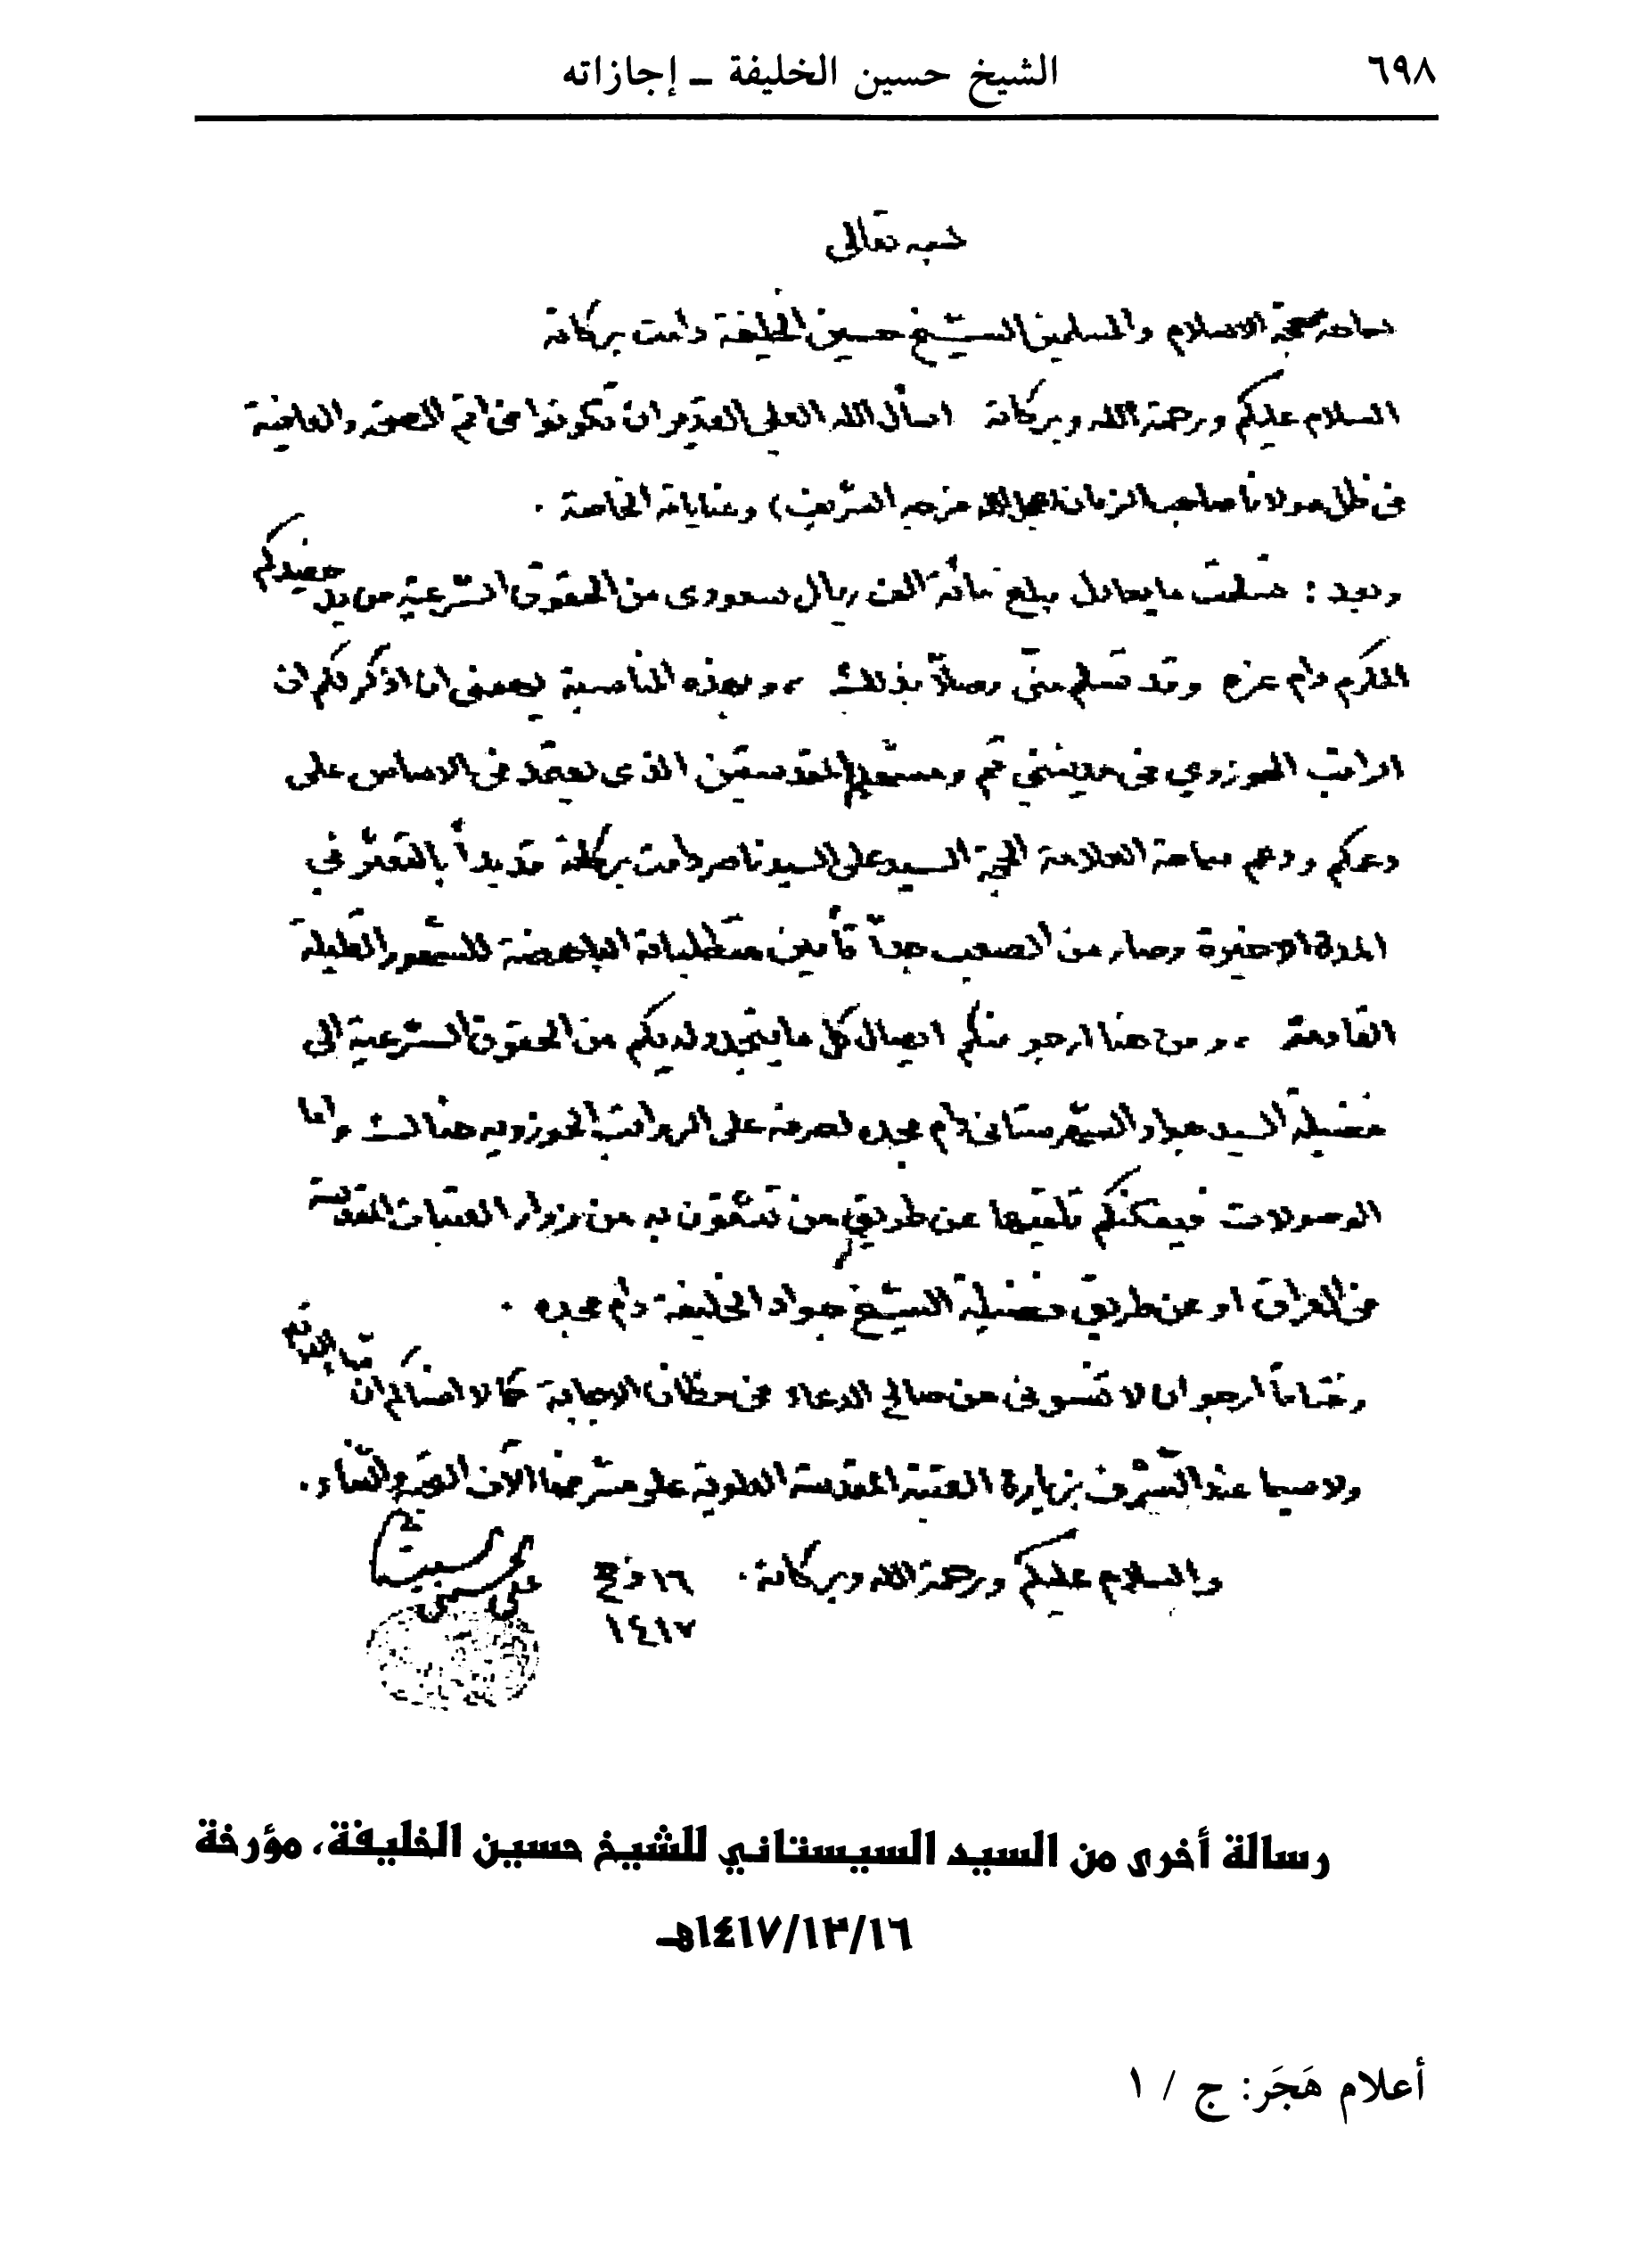 ٦٩٨
الشيخ حسين الخليفة ــ إجازاته
بسمه تعالى
سماحة حجة الاسلام والمسلمين الشيخ حسين الخليفة دامت بركاته
السلام عليكم ورحمة الله وبركاته اسأل الله العلي القدير ان تكونوا في اتم الصحة والعافية
في ظل مولانا صاحب الزمان (عجل الله فرجه الشريف) وعناياته الخاصة .
وبعد : تسلمت ما يعادل مبلغ مائة الف ريال سعودى من الحقوق الشرعية من يد حفيدكم
المكرم دام عزه وقد تسلم منّي وصلاً بذلك ، وبهذه المناسبة يهمني ان اذكر لكم ان
الراتب الحوزوي في مدينتي قم ومشهد المقدستين الذى يعتمد في الاساس على
دعمكم ودعم سماحة العلامة الحجة السيد علي السيد ناصر دامت بركاته قد بدأ بالتعثر في
المدة الاخيرة وصار من الصعب جداً تأمين متطلباته الباهضة للشهور القليلة
القادمة ، ومن هنا ارجو منكم ايصال كل ما يتجدد لديكم من الحقوق الشرعية الى
فضيلة السيد جواد الشهرستاني دام مجده لصرفه على الرواتب الحوزوية هنالك واما
الوصولات فيمكنكم تلقيها عن طريق من تثقون به من زوار العتبات المقدسة
في العراق او عن طريق فضيلة الشيخ جواد الخليفة دام مجده .
وختاماً ارجو ان لا تنسوني من صالح الدعاء في مظان الاجابة كما لا انساكم ان شاء الله تعالى
ولا سيما عند التشرف بزيارة العتبة المقدسة العلوية على مشرفها الآف التحية والثناء .
والسلام عليكم ورحمة الله وبركاته . ١٦ ذ ح
١٤١٧
علي الحسيني السيستاني
رسالة أخرى من السيد السيستاني للشيخ حسين الخليفة، مؤرخة
١٤١٧/١٢/١٦هـ
أعلام هَجَر: ج / ١